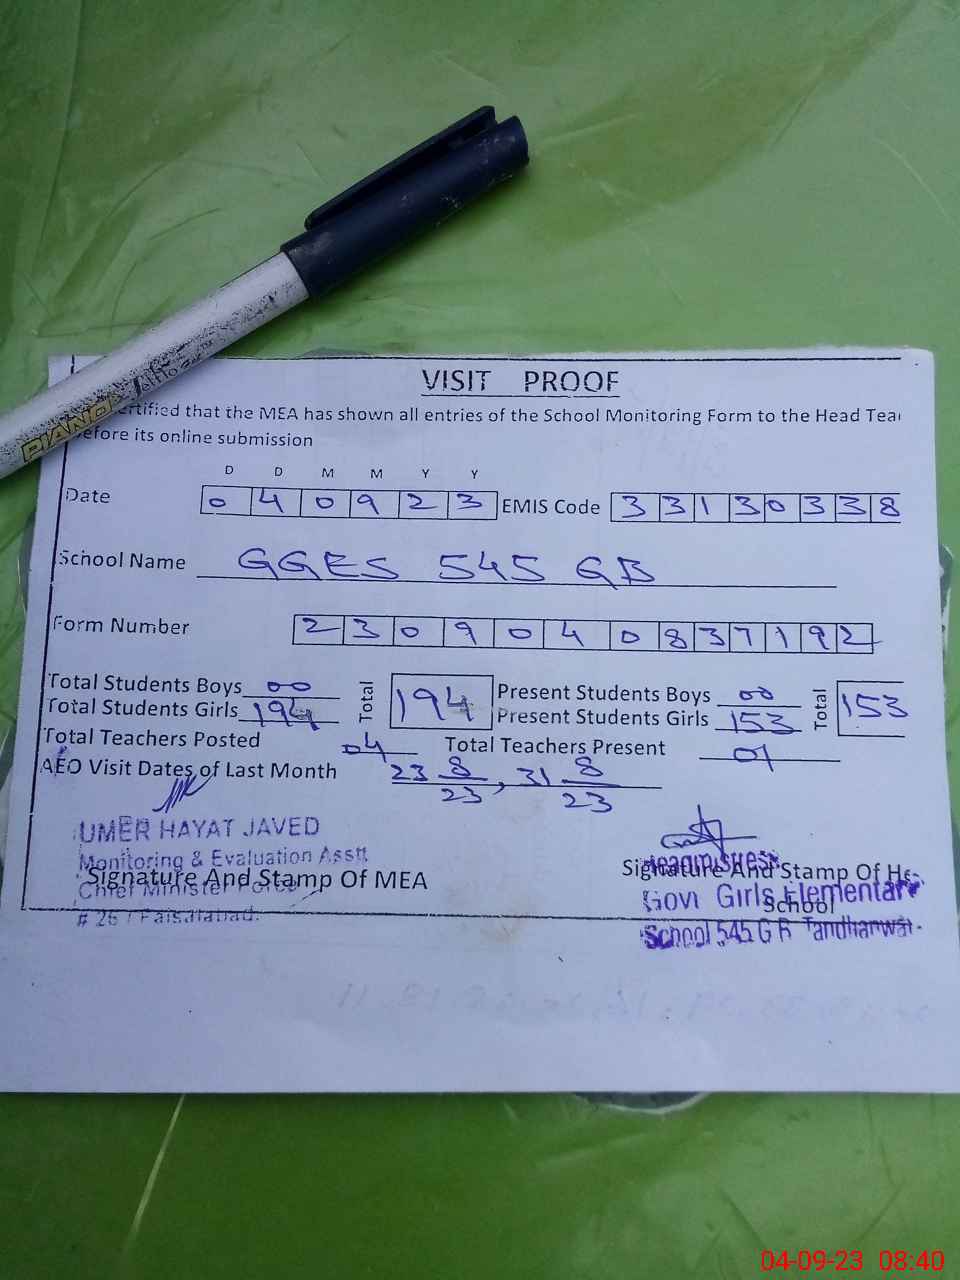 PIANO
VISIT PROOF
ertified that the MEA has shown all entries of the School Monitoring Form to the Head Tea
efore its online submission
D D M M Y Y
Date 0 4 0 9 2 3 EMIS Code 3 3 1 3 0 3 3 8
School Name GGES 545 GB
Form Number 2 3 0 9 0 4 0 8 3 7 1 9 2
Total Students Boys 00 Total 194 Present Students Boys 00 Total 153
Total Students Girls 194 Present Students Girls 153
Total Teachers Posted 04 Total Teachers Present
AEO Visit Dates of Last Month 23 8/23, 31 8/23
UMER HAYAT JAVED
Monitoring & Evaluation Asstt
Signature And Stamp Of MEA
Chief Minister
Faisalabad.
Headmistress
Signature And Stamp Of He
Govt Girls Elementary
School
School 545 G B
04-09-23 08:40